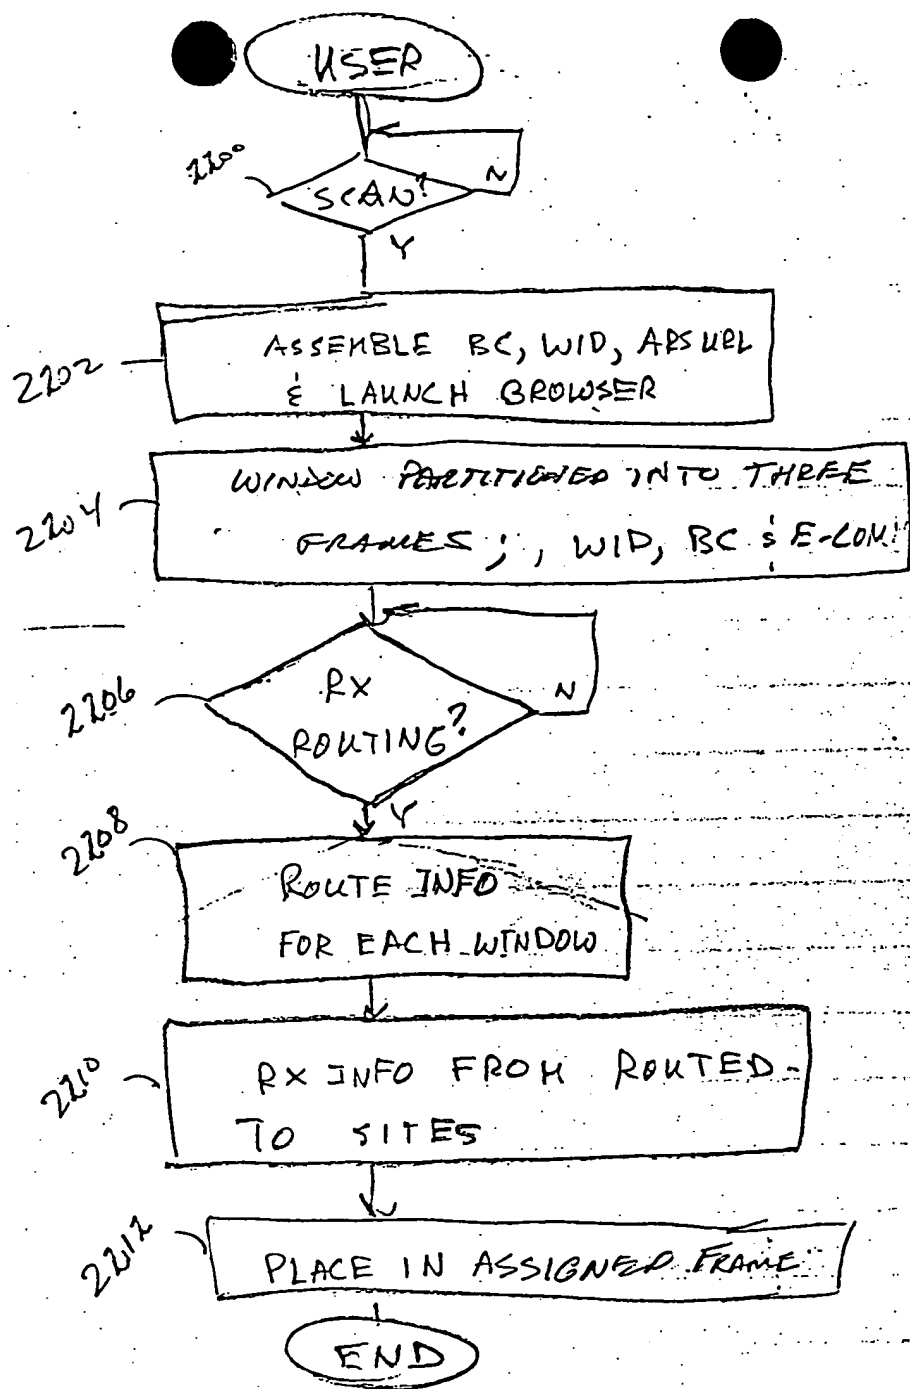 USER
2200
SCAN?
N
Y
2202
ASSEMBLE BC, WID, ARS URL
& LAUNCH BROWSER
2204
WINDOW PARTITIONED INTO THREE
FRAMES ; , WID, BC & E-COM.
2206
RX
ROUTING?
N
Y
2208
ROUTE INFO
FOR EACH WINDOW
2210
RX INFO FROM ROUTED-
TO SITES
2212
PLACE IN ASSIGNED FRAME
END